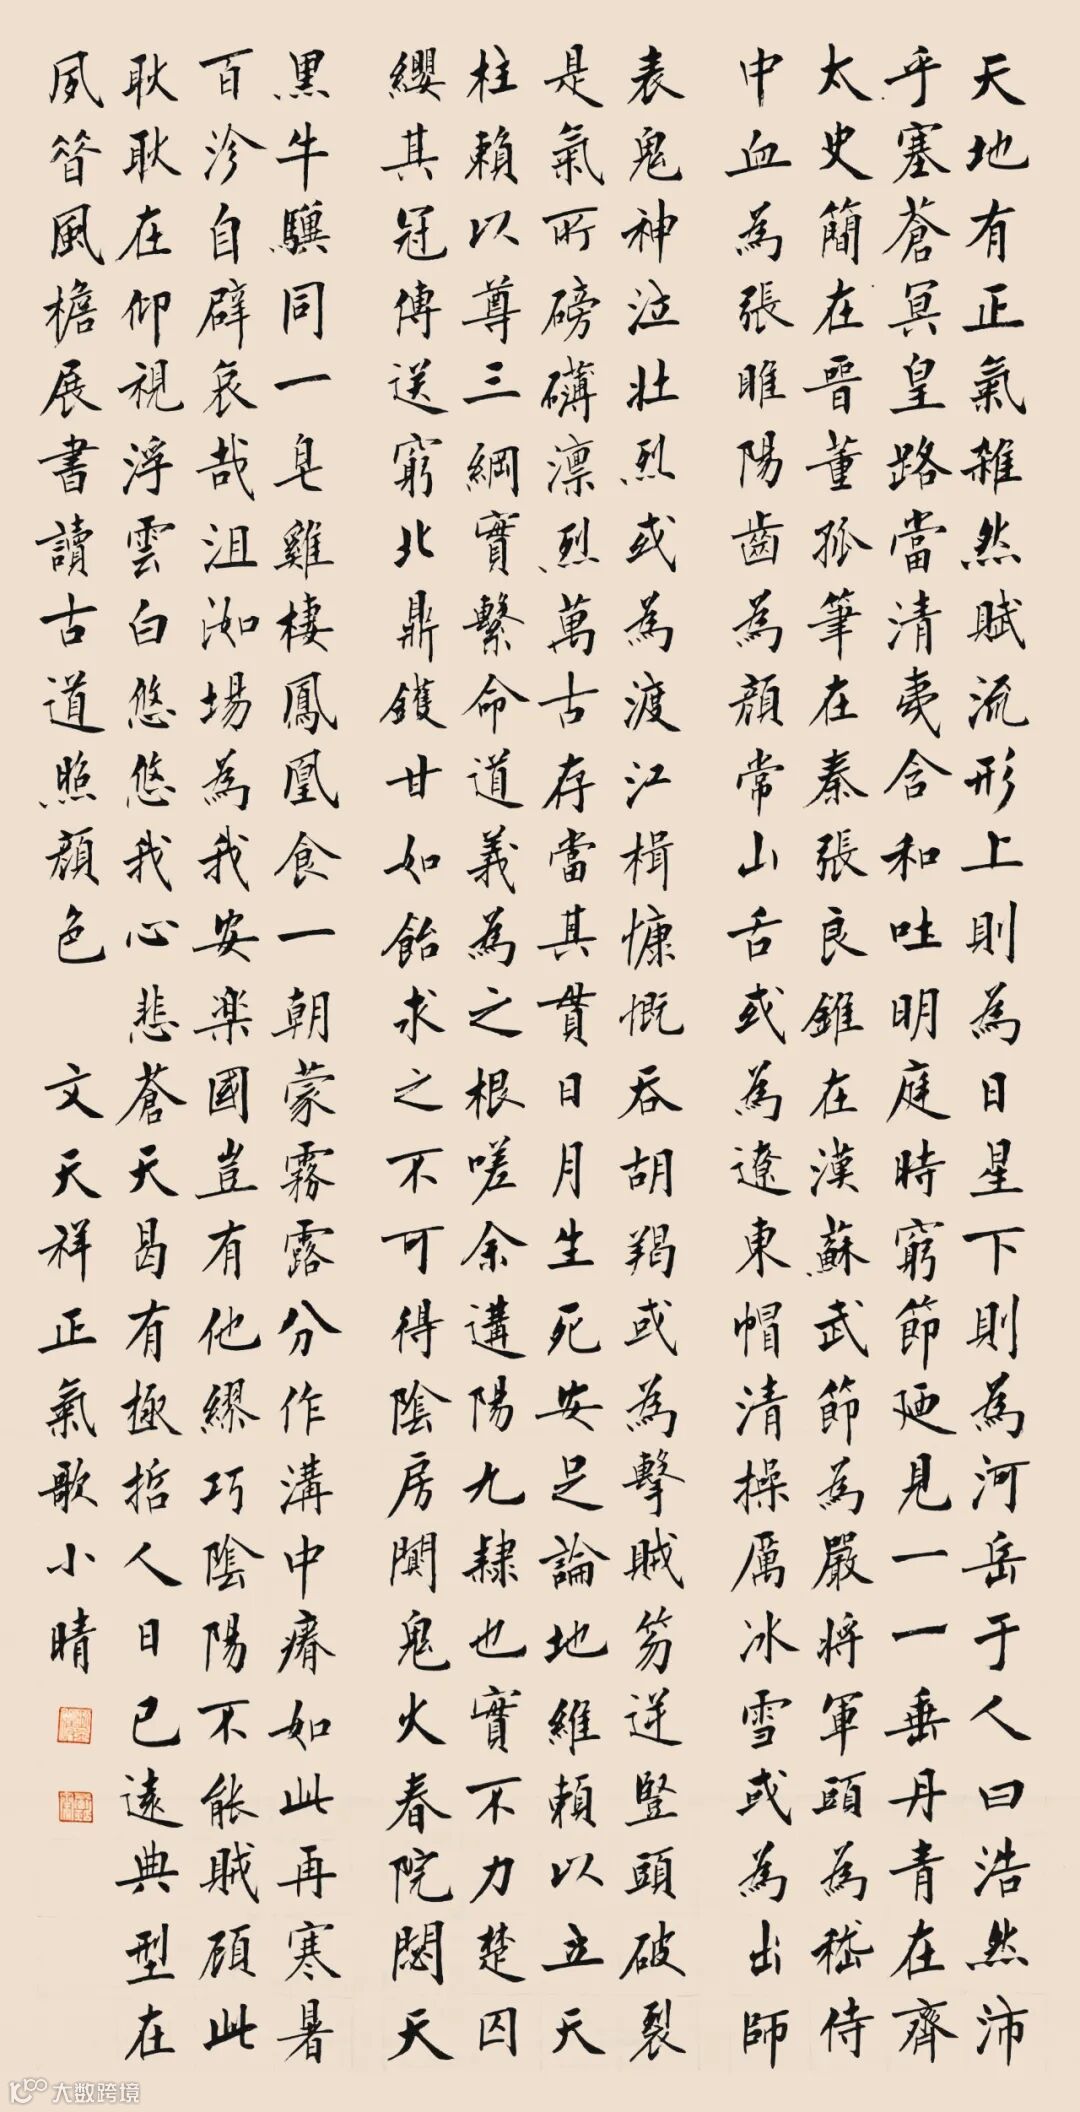 天地有正氣雜然賦流形上則為日星下則為河岳于人曰浩然沛
乎塞蒼冥皇路當清夷含和吐明庭時窮節迺見一一垂丹青在齊
太史簡在晉董狐筆在秦張良錐在漢蘇武節為嚴將軍頭為嵇侍
中血為張睢陽齒為顏常山舌或為遼東帽清操厲冰雪或為出師
表鬼神泣壯烈或為渡江楫慷慨吞胡羯或為擊賊笏逆豎頭破裂
是氣所磅礴凛烈萬古存當其貫日月生死安足論地維賴以立天
柱賴以尊三綱實繫命道義為之根嗟余遘陽九隸也實不力楚囚
纓其冠傳送窮北鼎鑊甘如飴求之不可得陰房闃鬼火春院閟天
黑牛驥同一皂雞棲鳳凰食一朝蒙霧露分作溝中瘠如此再寒暑
百沴自辟哀哉沮洳場為我安楽國豈有他繆巧陰陽不能賊顧此
耿耿在仰視浮雲白悠悠我心悲蒼天曷有極哲人日已遠典型在
夙昔風檐展書讀古道照顏色 文天祥正氣歌小晴
大数跨境